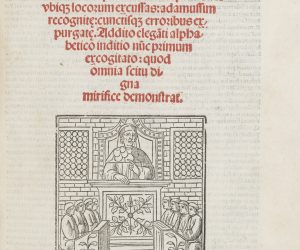 vbiq; locorum excussas: adamussim
recognite: cunctisq; erroribus ex⸗
purgate. Addito elegāti alpha⸗
betico inditio nūc primum
excogitato: quod
omnia scitu di⸗
gna
mirifice demonstrat.